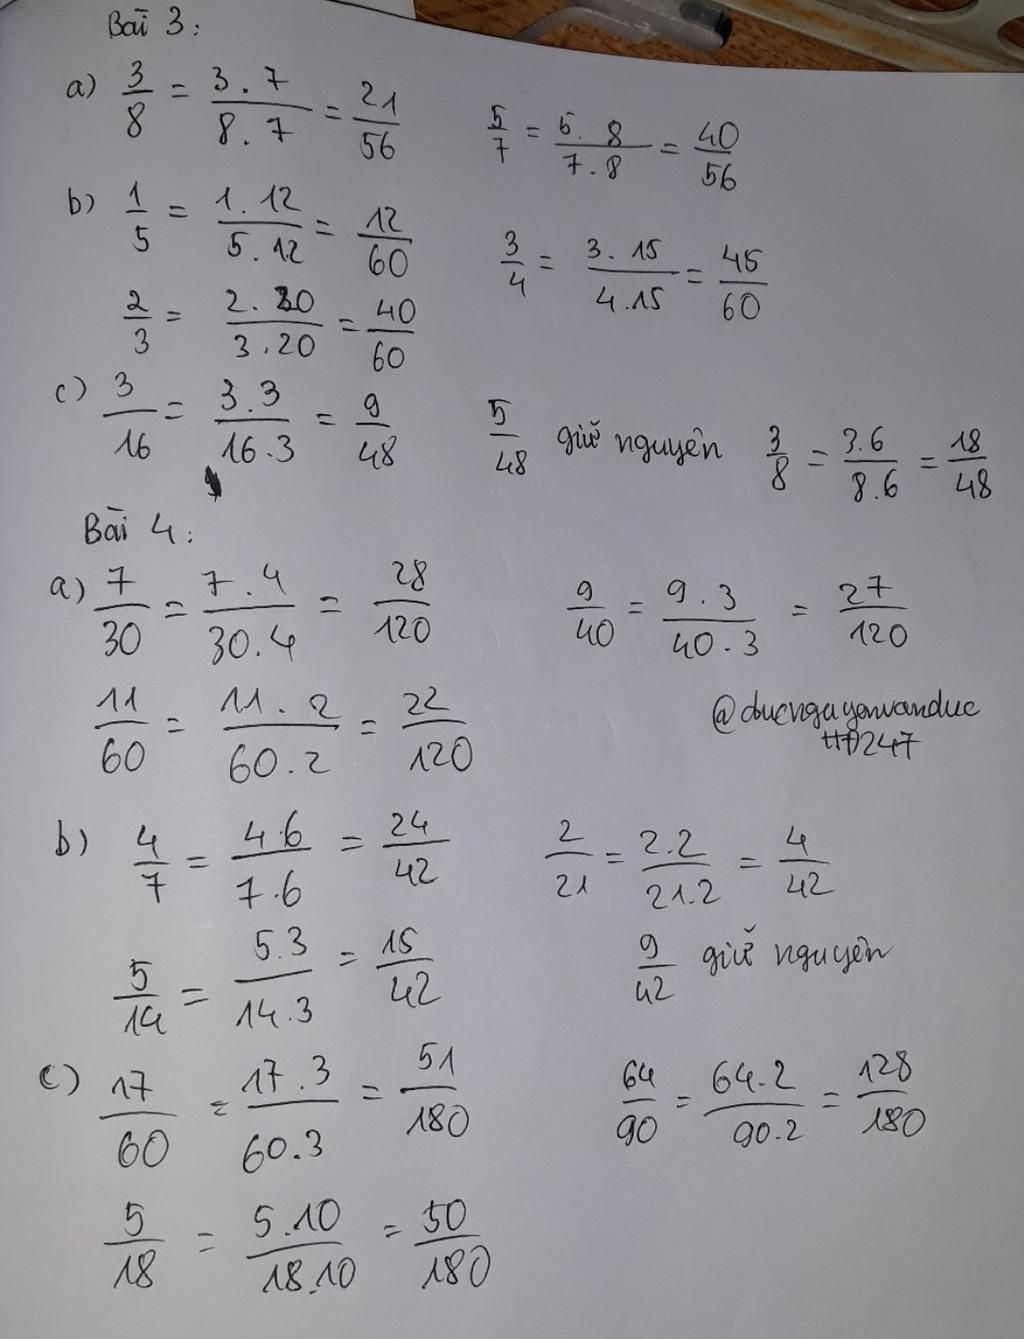 Bài 3:
a) 3/8 = 3.7/8.7 = 21/56 5/7 = 5.8/7.8 = 40/56
b) 1/5 = 1.12/5.12 = 12/60 3/4 = 3.15/4.15 = 45/60
2/3 = 2.20/3.20 = 40/60
c) 3/16 = 3.3/16.3 = 9/48 5/48 giữ nguyên 3/8 = 3.6/8.6 = 18/48
Bài 4:
a) 7/30 = 7.4/30.4 = 28/120 9/40 = 9.3/40.3 = 27/120
11/60 = 11.2/60.2 = 22/120
@ducngayenvanduc
b) 4/7 = 4.6/7.6 = 24/42 2/21 = 2.2/21.2 = 4/42
5/14 = 5.3/14.3 = 15/42 9/42 giữ nguyên
c) 17/60 = 17.3/60.3 = 51/180 64/90 = 64.2/90.2 = 128/180
5/18 = 5.10/18.10 = 50/180